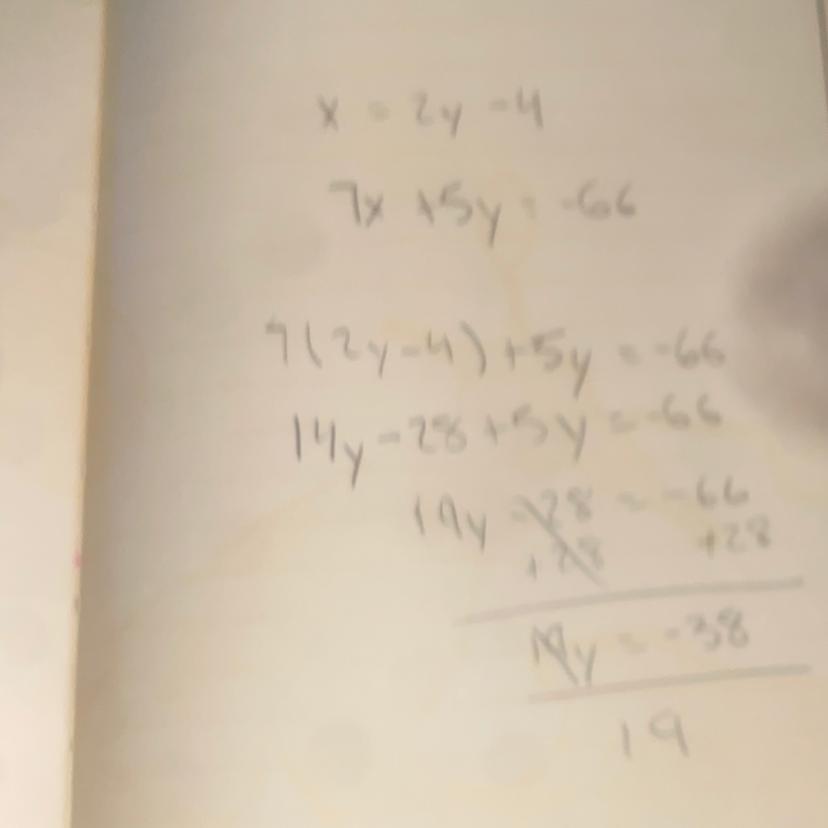 x = 2y - 4
7x + 5y = -66
7(2y - 4) + 5y = -66
14y - 28 + 5y = -66
19y - 28 = -66
+28 +28
19y = -38
19